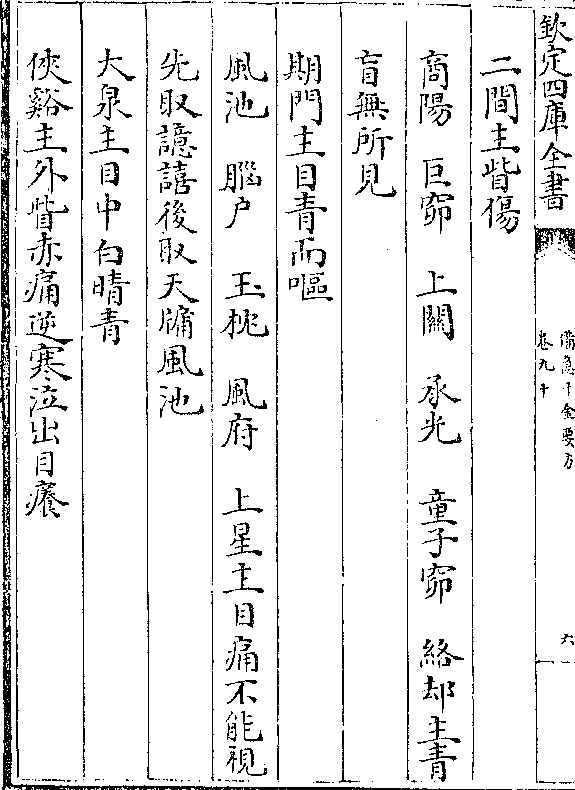 欽定四庫全書
備急千金要方
卷九十
六
二間主眥傷
商陽　巨窌　上關　承光　童子窌　絡却主青
盲無所見
期門主目青而嘔
風池　腦户　玉枕　風府　上星主目痛不能視
先取譩譆後取天牖風池
大泉主目中白睛青
俠谿主外眥赤痛逆寒泣出目癢